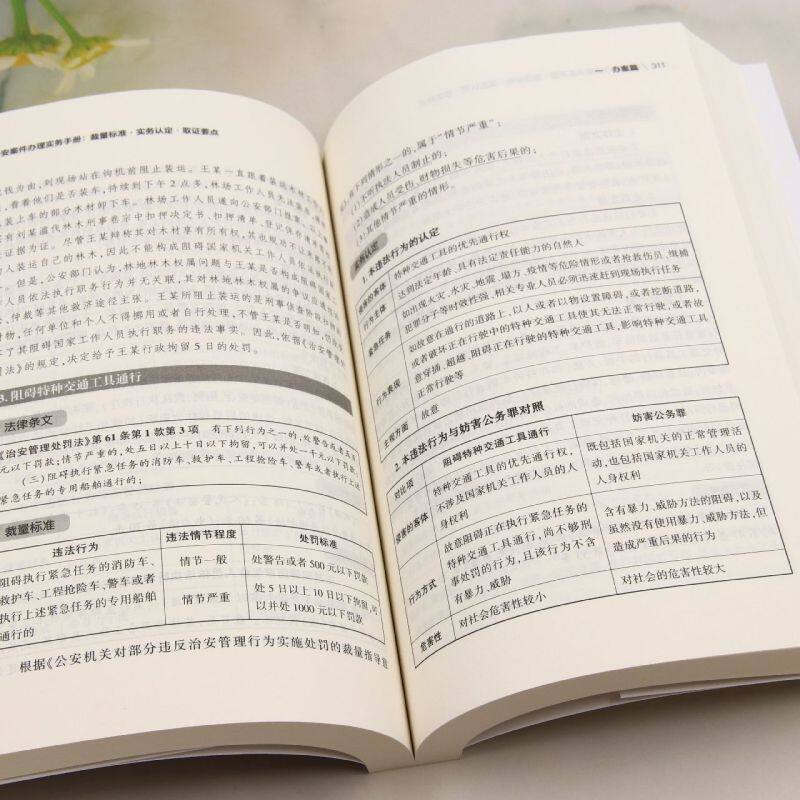 安案件办理实务手册：裁量标准·实务认定·取证要点
钱为由，到现场站在钩机前阻止装运。王某一直跟着装
，看看他们是否装车，持续到下午2点多，林场工作人员无法装
装上车的部分木材卸下车。林场工作人员遂向公安部门报案
有刘某盗伐林木刑事卷宗中扣押决定书、扣押清单、登记保存清单等
证据为证。尽管王某辩称其对木材享有所有权，其也规劝不让
人装运自己的林木，因此不能构成阻碍国家机关工作人员依法执行
。但是，公安部门认为，林地林木权属问题与王某是否构成阻碍国家
人员依法执行职务行为并无关联，其对林地林木权属的争议应通过
、仲裁等其他救济途径主张。王某所阻止装运的是刑事侦查阶段扣押
财物，任何单位和个人不得挪用或者自行处理，不管王某是否明知，
了其阻碍国家工作人员执行职务的违法事实。因此，依据《治安管理
法》的规定，决定给予王某行政拘留5日的处罚。
3. 阻碍特种交通工具通行
法律条文
《治安管理处罚法》第61条第1款第3项 有下列行为之一的，处警告或者五百
元以下罚款；情节严重的，处五日以上十日以下拘留，可以并处一千元以下罚款：
（三）阻碍执行紧急任务的消防车、救护车、工程抢险车、警车或者执行上述
紧急任务的专用船舶通行的；
裁量标准
违法行为 违法情节程度 处罚标准
阻碍执行紧急任务的消防车、
救护车、工程抢险车、警车或者
执行上述紧急任务的专用船舶
通行的
情节一般 处警告或者500元以下罚款
情节严重 处5日以上10日以下拘留，可
以并处1000元以下罚款
根据《公安机关对部分违反治安管理行为实施处罚的裁量指导意
一 办案篇 311
见》，有下列情形之一的，属于“情节严重”：
(1)不听执法人员制止的；
(2)造成人员受伤、财物损失等危害后果的；
(3)其他情节严重的情形。
实务认定
1.本违法行为的认定
侵害的客体 特种交通工具的优先通行权
行为主体 达到法定年龄、具有法定责任能力的自然人
紧急任务 如出现火灾、水灾、地震、塌方、疫情等危险情形或者抢救伤员、缉捕
犯罪分子等时效性强、相关专业人员必须迅速赶到现场执行任务
行为表现 如故意在通行的道路上，以人或者以物设置障碍，或者挖断道路，
或者破坏正在行驶中的特种交通工具使其无法正常行驶，或者故
意穿插、超越、阻碍正在行驶的特种交通工具，影响特种交通工具
正常行驶等
主观方面 故意
2.本违法行为与妨害公务罪对照
对比项 阻碍特种交通工具通行 妨害公务罪
侵害的客体 特种交通工具的优先通行权，
不涉及国家机关工作人员的人
身权利
既包括国家机关的正常管理活
动，也包括国家机关工作人员的
人身权利
行为方式 故意阻碍正在执行紧急任务的
特种交通工具通行，尚不够刑
事处罚的行为，且该行为不含
有暴力、威胁
含有暴力、威胁方法的阻碍，以及
虽然没有使用暴力、威胁方法，但
造成严重后果的行为
危害性 对社会危害性较小 对社会的危害性较大